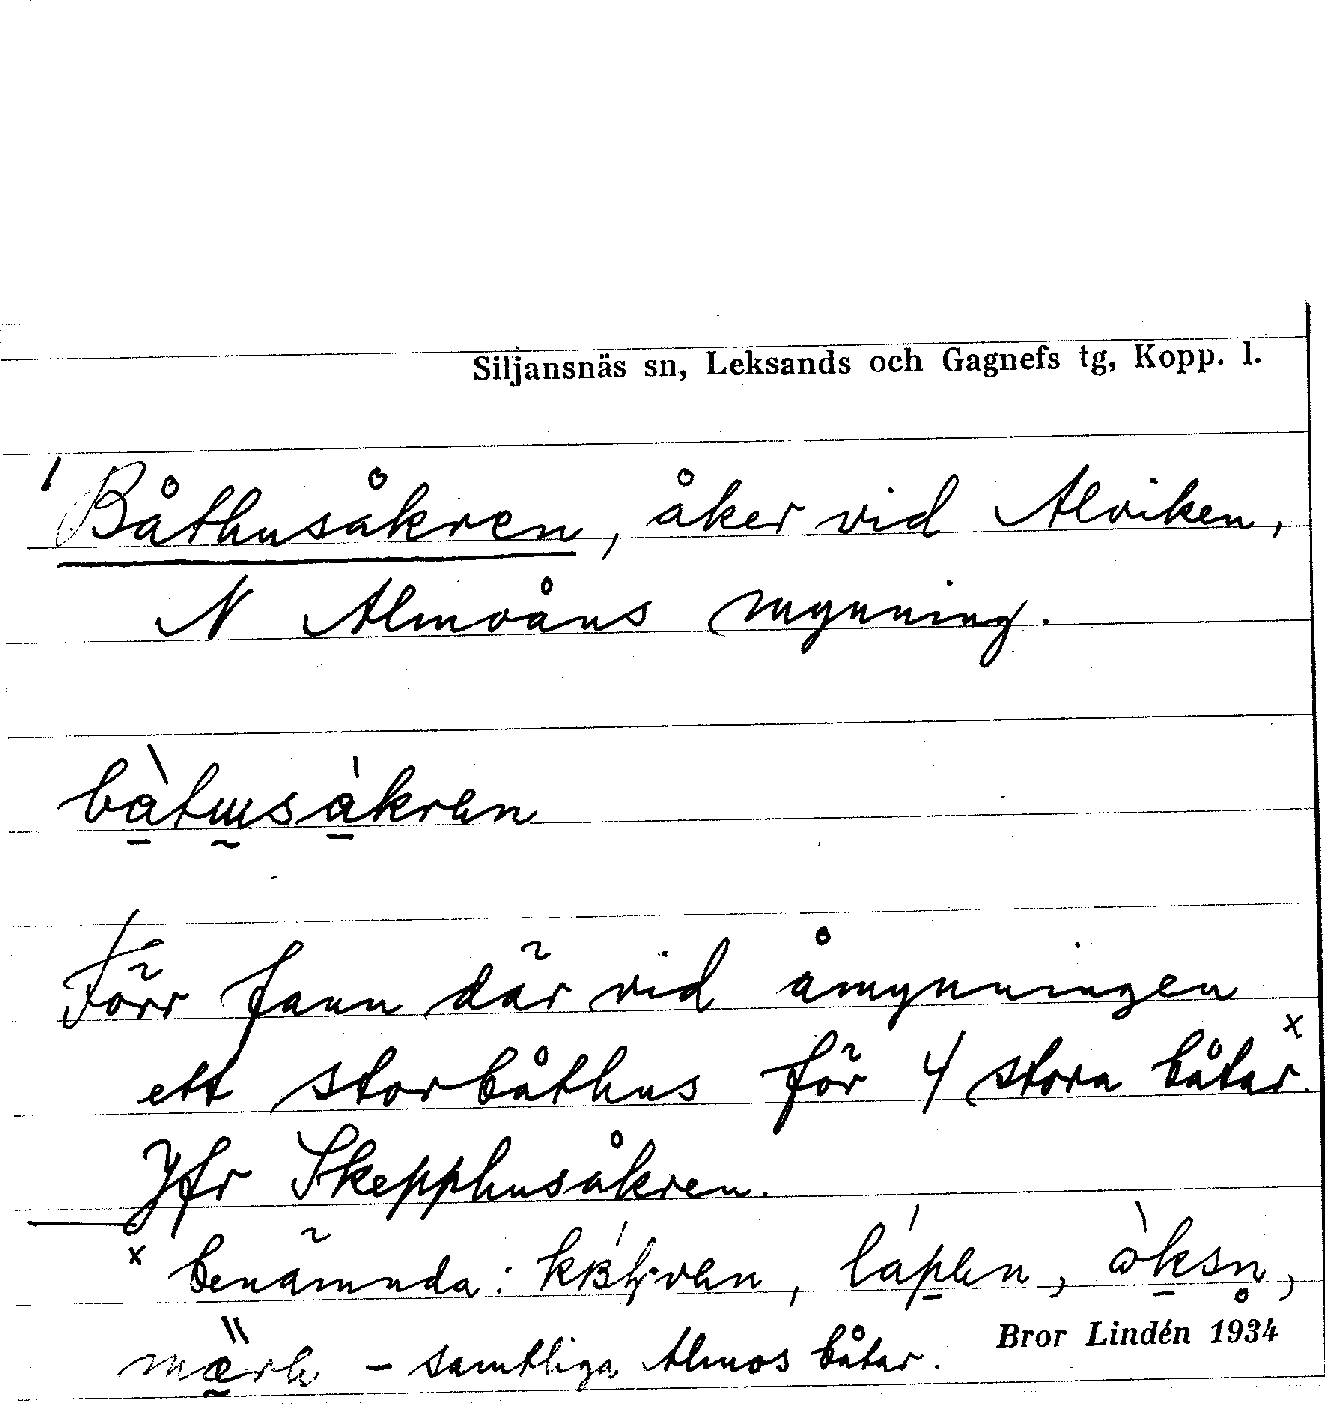 Siljansnäs sn, Leksands och Gagnefs tg, Kopp. l.
Båthusåkren, åker vid Alviken,
N Almoåns mynning.
bàtɯsàkrən
Förr fann där vid åmynningen
ett storbåthus för 4 stora båtar.x
Jfr Skepphusåkren.
x benämnda: lápən, òksn̥,
mærə – samtliga Almos båtar.
Bror Lindén 1934